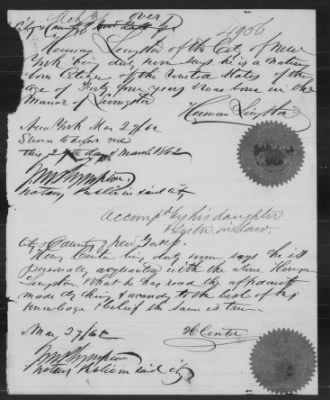 over
4906
City & County of New York ss
Herman Livingston of the City of New
York being duly sworn says he is a native
born Citizen of the United States of the
age of forty four years & was born in the
Manor of Livingston
Herman Livingston
New York Mar 27/62
Sworn to before me
this 27th day of March 1862
Notary Public in said city
Accompd by his daughter
& sister in law.
City & County of New York ss
Henry Center being duly sworn says he is
personally acquainted with the above Herman
Livingston. That he has read the affidavit
made by him & according to the best of his
knowledge & belief the same is true.
Mar 27/62
H Center
Notary Public in said city